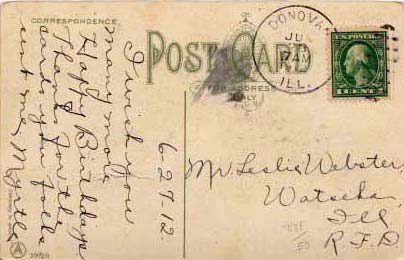 CORRESPONDENCE
POST CARD
FOR ADDRESS
ONLY
DONOVA
JU
ILL.
U.S. POSTAGE
1 CENT 1
6-27-12.
I wish you
many more
Happy Birthdays.
Thanks for the
cards you folks
sent me, Myrtle
Mr Leslie Webster,
Watseka,
Ill
R.F.D.